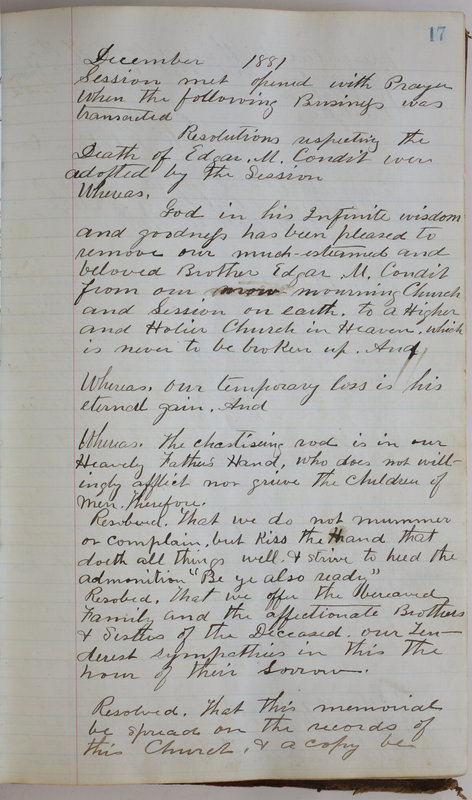 17
December 1881
Session met opened with Prayer
When the following Business was
transacted
Resolutions respecting the
Death of Edgar. M. Condit were
adopted by the Session
Whereas,
God in his Infinite wisdom
and goodness has been pleased to
remove our much-esteemed and
beloved Brother Edgar M. Condit
from our mourning Church
and Session on earth, to a Higher
and Holier Church in Heaven, which
is never to be broken up. And
Whereas, our temporary loss is his
eternal gain, And
Whereas. The chastising rod is in our
Heavenly Fathers Hand, who does not will-
ingly afflict nor grieve the children of
men. Therefore.
Resolved. That we do not mummer
or complain, but Kiss the Hand that
doeth all things well, & strive to heed the
admonition "Be ye also ready"
Resolved, That we offer the Bereaved
Family and the affectionate Brothers
& Sisters of the Deceased. our Ten-
derest sympathies in this the
hour of their Sorrow.
Resolved. That this memorial
be spread on the records of
this Church, & a copy be